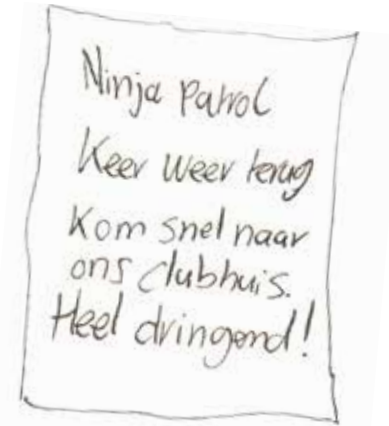 Ninja Patrol
Keer weer terug
Kom snel naar
ons clubhuis.
Heel dringend!